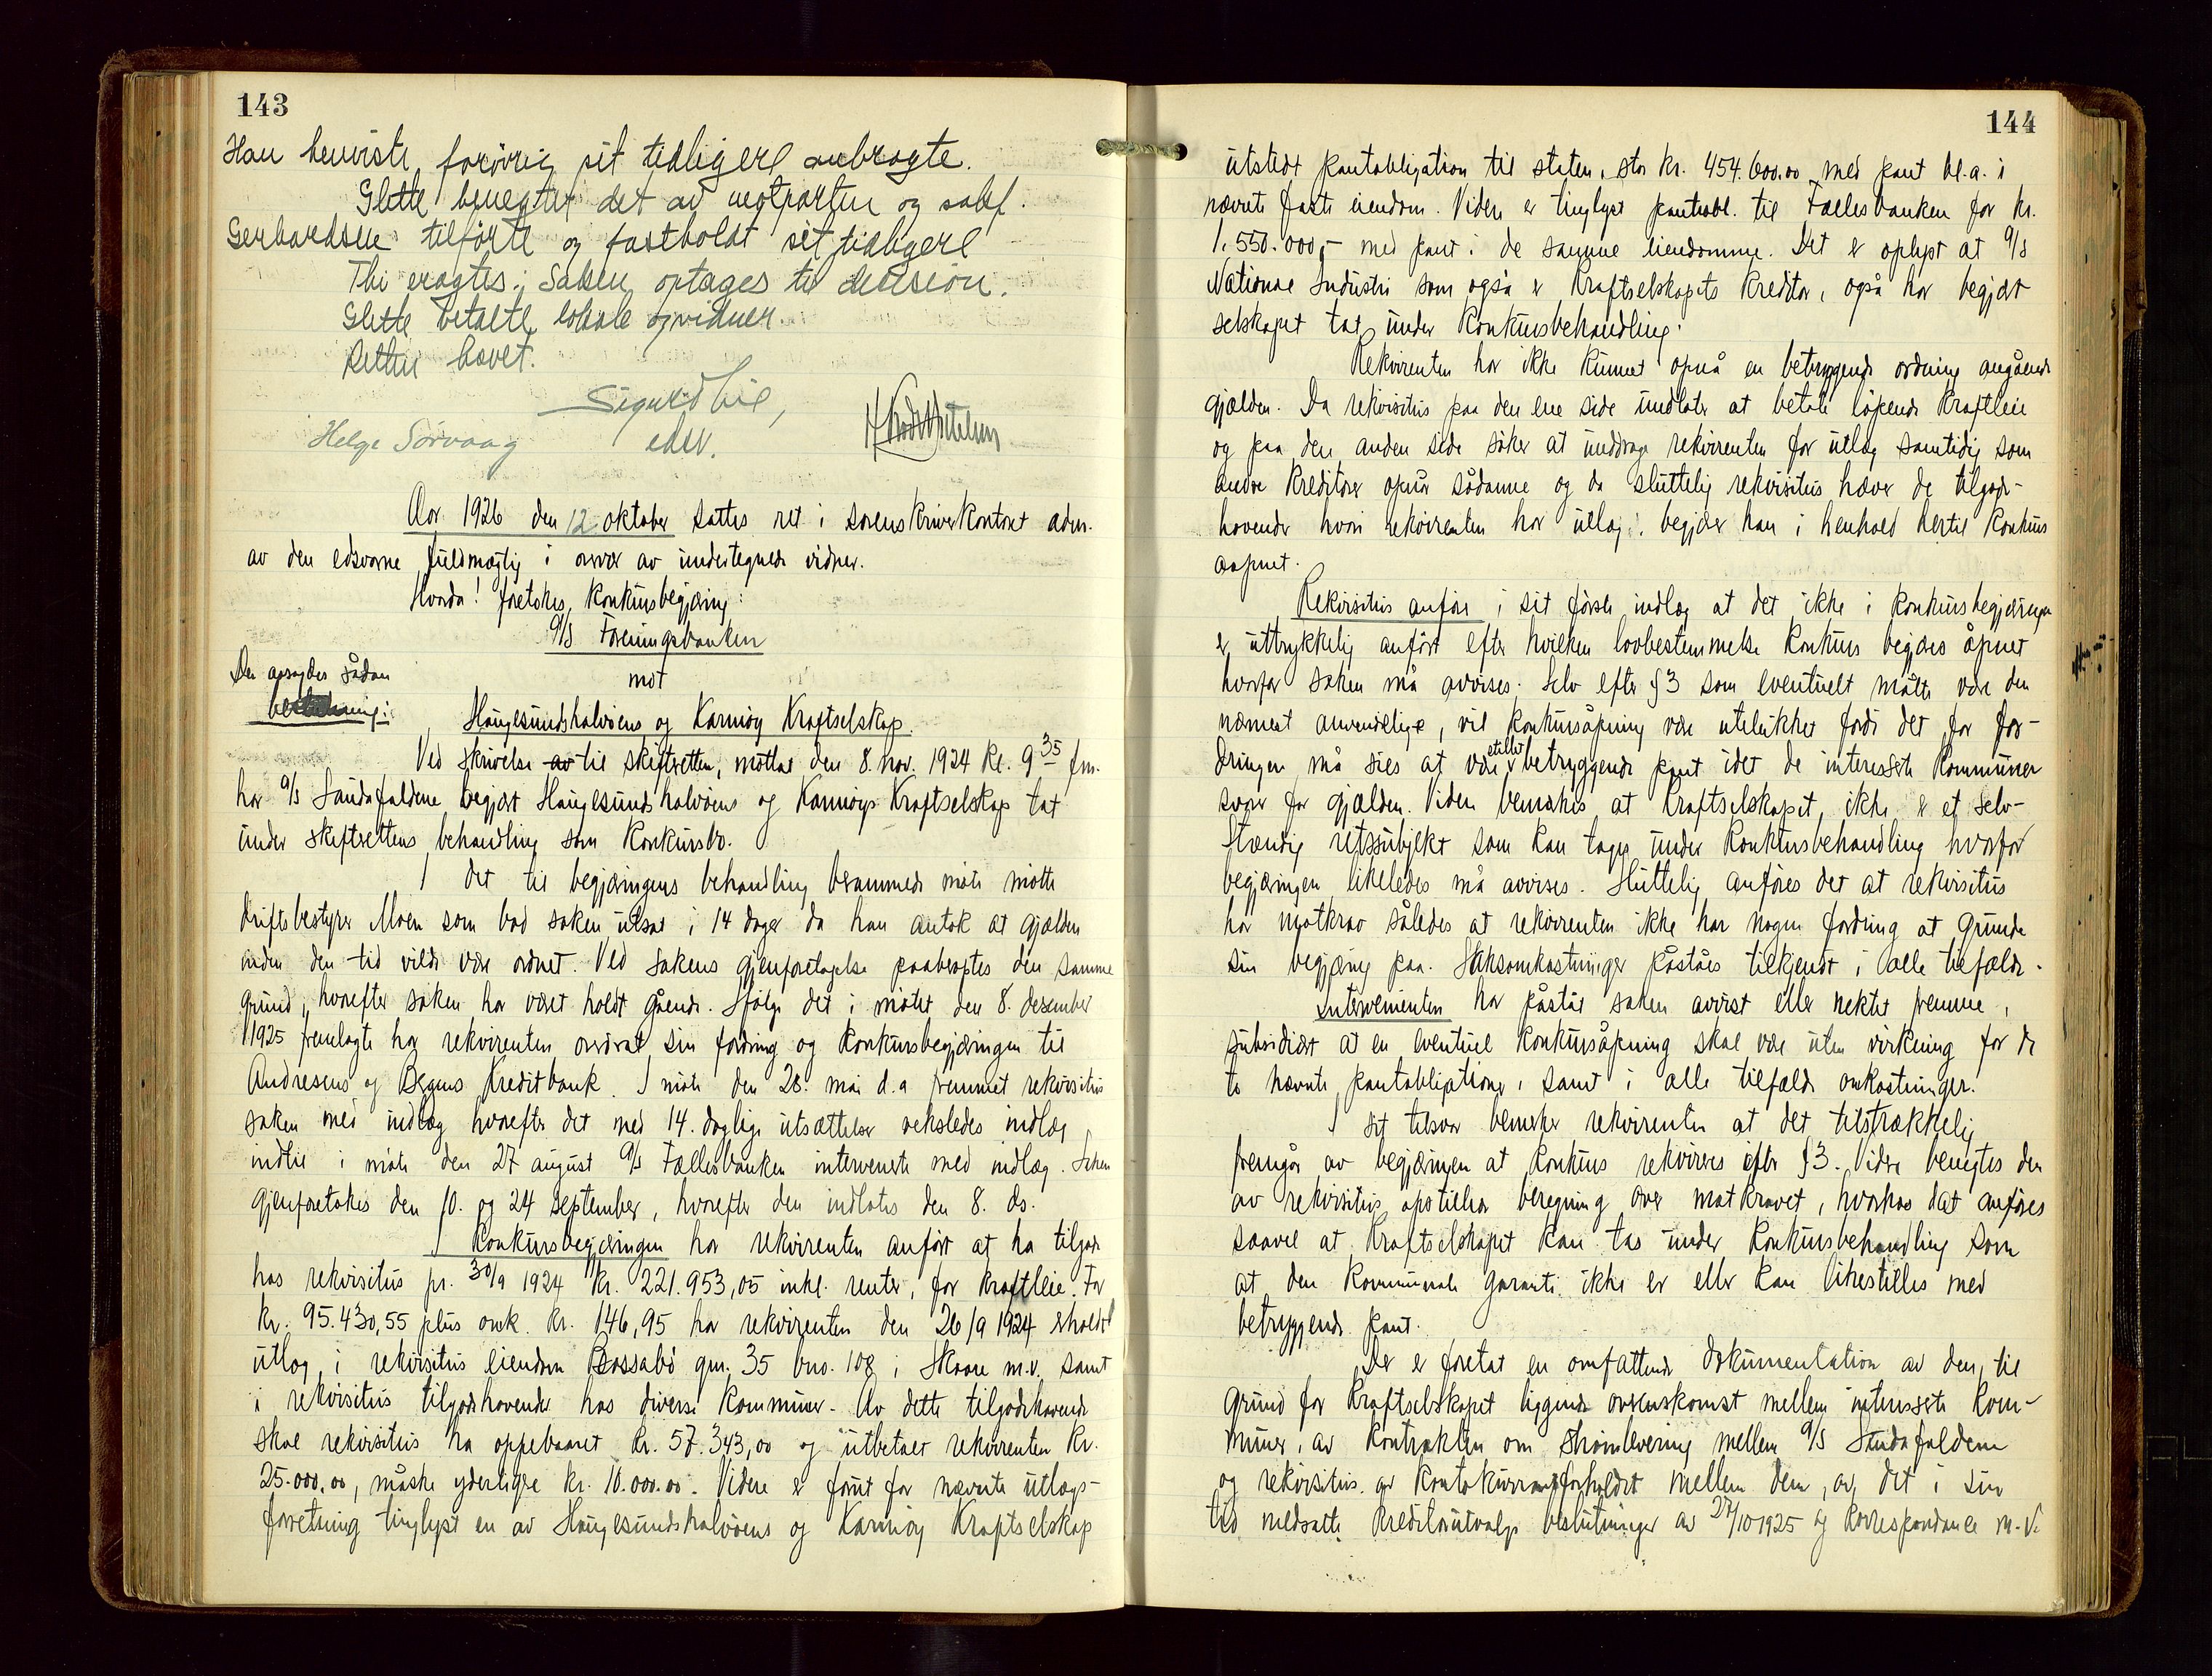 143
Han henviste forøvrig sit tidligere anbragte.
Slette benegtet det av motparten og sakf.
Gerhardsen tilførte og fastholdt sit tidligere
Thi eragtes: Saken optages til decision.
Slette betalte lokale og vidner.
Retten hævet.
Sigurd Lie,
Helge Sørvaag
edsv.
Aar 1926 den 12 oktober sattes ret i sorenskriverkontoret adm.
av den edsvorne fuldmægtig i overvær av undertegnede vidner.
Hvorda! foretokes konkursbegjæring:
A/S Foreningsbanken
mot
Der avsagdes sådan
Haugesundshalvøens og Karmøy Kraftselskap.
Ved skrivelse av til skifteretten, mottat den 8. nov. 1924 kl. 9 35 fm.
har A/S Saudefaldene begjært Haugesundshalvøens og Karmøys Kraftselskap tat
under skifterettens behandling som konkursbo.
I det til begjæringens behandling berammede møte møtte
driftsbestyrer Moen som bad saken utsat i 14 dager da han antok at gjælden
inden den tid vilde være ordnet. Ved sakens gjenforetagelse paaberoptes den samme
grund, hvorefter saken har været holdt gående. Ifølge det i møtet den 8. desember
1925 fremlagte har rekvirenten overdrat sin fordring og konkursbegjæringen til
Andresens og Bergens Kreditbank. I møte den 28. mai d.a fremmet rekvisitus
saken med indlæg hvorefter det med 14. daglige utsættelser veksledes indlæg
indtil i møte den 27 august A/S Fællesbanken intervenerte med indlæg. Saken
gjenforetokes den 10. og 24 september, hvorefter den indlates den 8. ds.
I konkursbegjæringen har rekvirenten anført at ha tilgode
hos rekvisitus pr. 30/9 1924 kr. 221.953,05 inkl. renter, for kraftleie. For
kr. 95.430,55 plus omk. kr. 146,95 har rekvirenten den 26/9 1924 erholdt
utlæg i rekvisitus eiendom Bossabø gnr. 35 bno. 108 i Skaare m.v. samt
i rekvisitus tilgodehavende hos diverse kommuner. Av dette tilgodehavende
skal rekvisitus ha oppebaaret kr. 57.343,00 og utbetalt rekvirenten kr.
25.000,00, måske yderligere kr. 10.000.00. Videre er forut for nævnte utlægs-
forretning tinglyst en av Haugesundshalvøens og Karmøy Kraftselskap
144
utstedt pantobligation til staten, stor kr. 454.600.00 med pant bl.a. i
nævnte faste eiendom. Videre er tinglyst pantobl. til Fællesbanken for kr.
1.550.000,- med pant i de samme eiendomme. Det er oplyst at A/S
National Industri som også er Kraftselskapets kreditor, også har begjært
selskapet tat under konkursbehandling.
Rekvirenten har ikke kunnet opnå en betryggende ordning angående
gjælden. Da rekvisitus paa den ene side undlater at betale løpende kraftleie
og paa den anden side søker at unddrage rekvirenten for utlæg samtidig som
andre kreditorer opnår sådanne og da sluttelig rekvisitus hæver de tilgode-
havender hvori rekvirenten har utlæg, begjærer han i henhold hertil konkurs
aapnet.
Rekvisitus anfører i sit første indlæg at det ikke i konkursbegjæringen
er uttrykkelig anført efter hvilken lovbestemmelse konkurs begjæres åpnet
hvorfor saken må avvises. Selv efter §3 som eventuelt måtte være den
nærmest anvendelige, vil konkursåpning være utelukket fordi det for for-
dringen må sies at være stillet betryggende pant idet de interesserte kommuner
svarer for gjælden. Videre bemerkes at Kraftselskapet ikke er et selv-
stændig retssubjekt som kan tages under konkursbehandling hvorfor
begjæringen likeledes må avvises. Sluttelig anføres det at rekvisitus
har motkrav således at rekvirenten ikke har nogen fordring at grunde
sin begjæring paa. Saksomkostninger påståes tilkjendt i alle tilfælde.
Intervenienten har påståt saken avvist eller nektet fremme,
subsidiært at en eventuel konkursåpning skal være uten virkning for de
to nævnte pantobligationer, samt i alle tilfælde omkostninger.
I sit tilsvar bemerker rekvirenten at det tilstrækkelig
fremgår av begjæringen at konkurs rekvireres efter §3. Videre benegtes den
av rekvisitus opstillede beregning over motkravet, hvorhos det anføres
saavel at Kraftselskapet kan tas under konkursbehandling som
at den kommunale garanti ikke er eller kan likestilles med
betryggende pant.
Der er foretat en omfattende dokumentation av den til
grund for Kraftselskapet liggende overenskomst mellem interesserte kom-
muner, av kontrakten om strømlevering mellem A/S Saudefaldene
og rekvisitus av kontokurrantforholdet mellem dem, av det i sin
tid nedsatte kreditorutvalgs beslutninger av 27/10 1925 og korrespondance m.v.